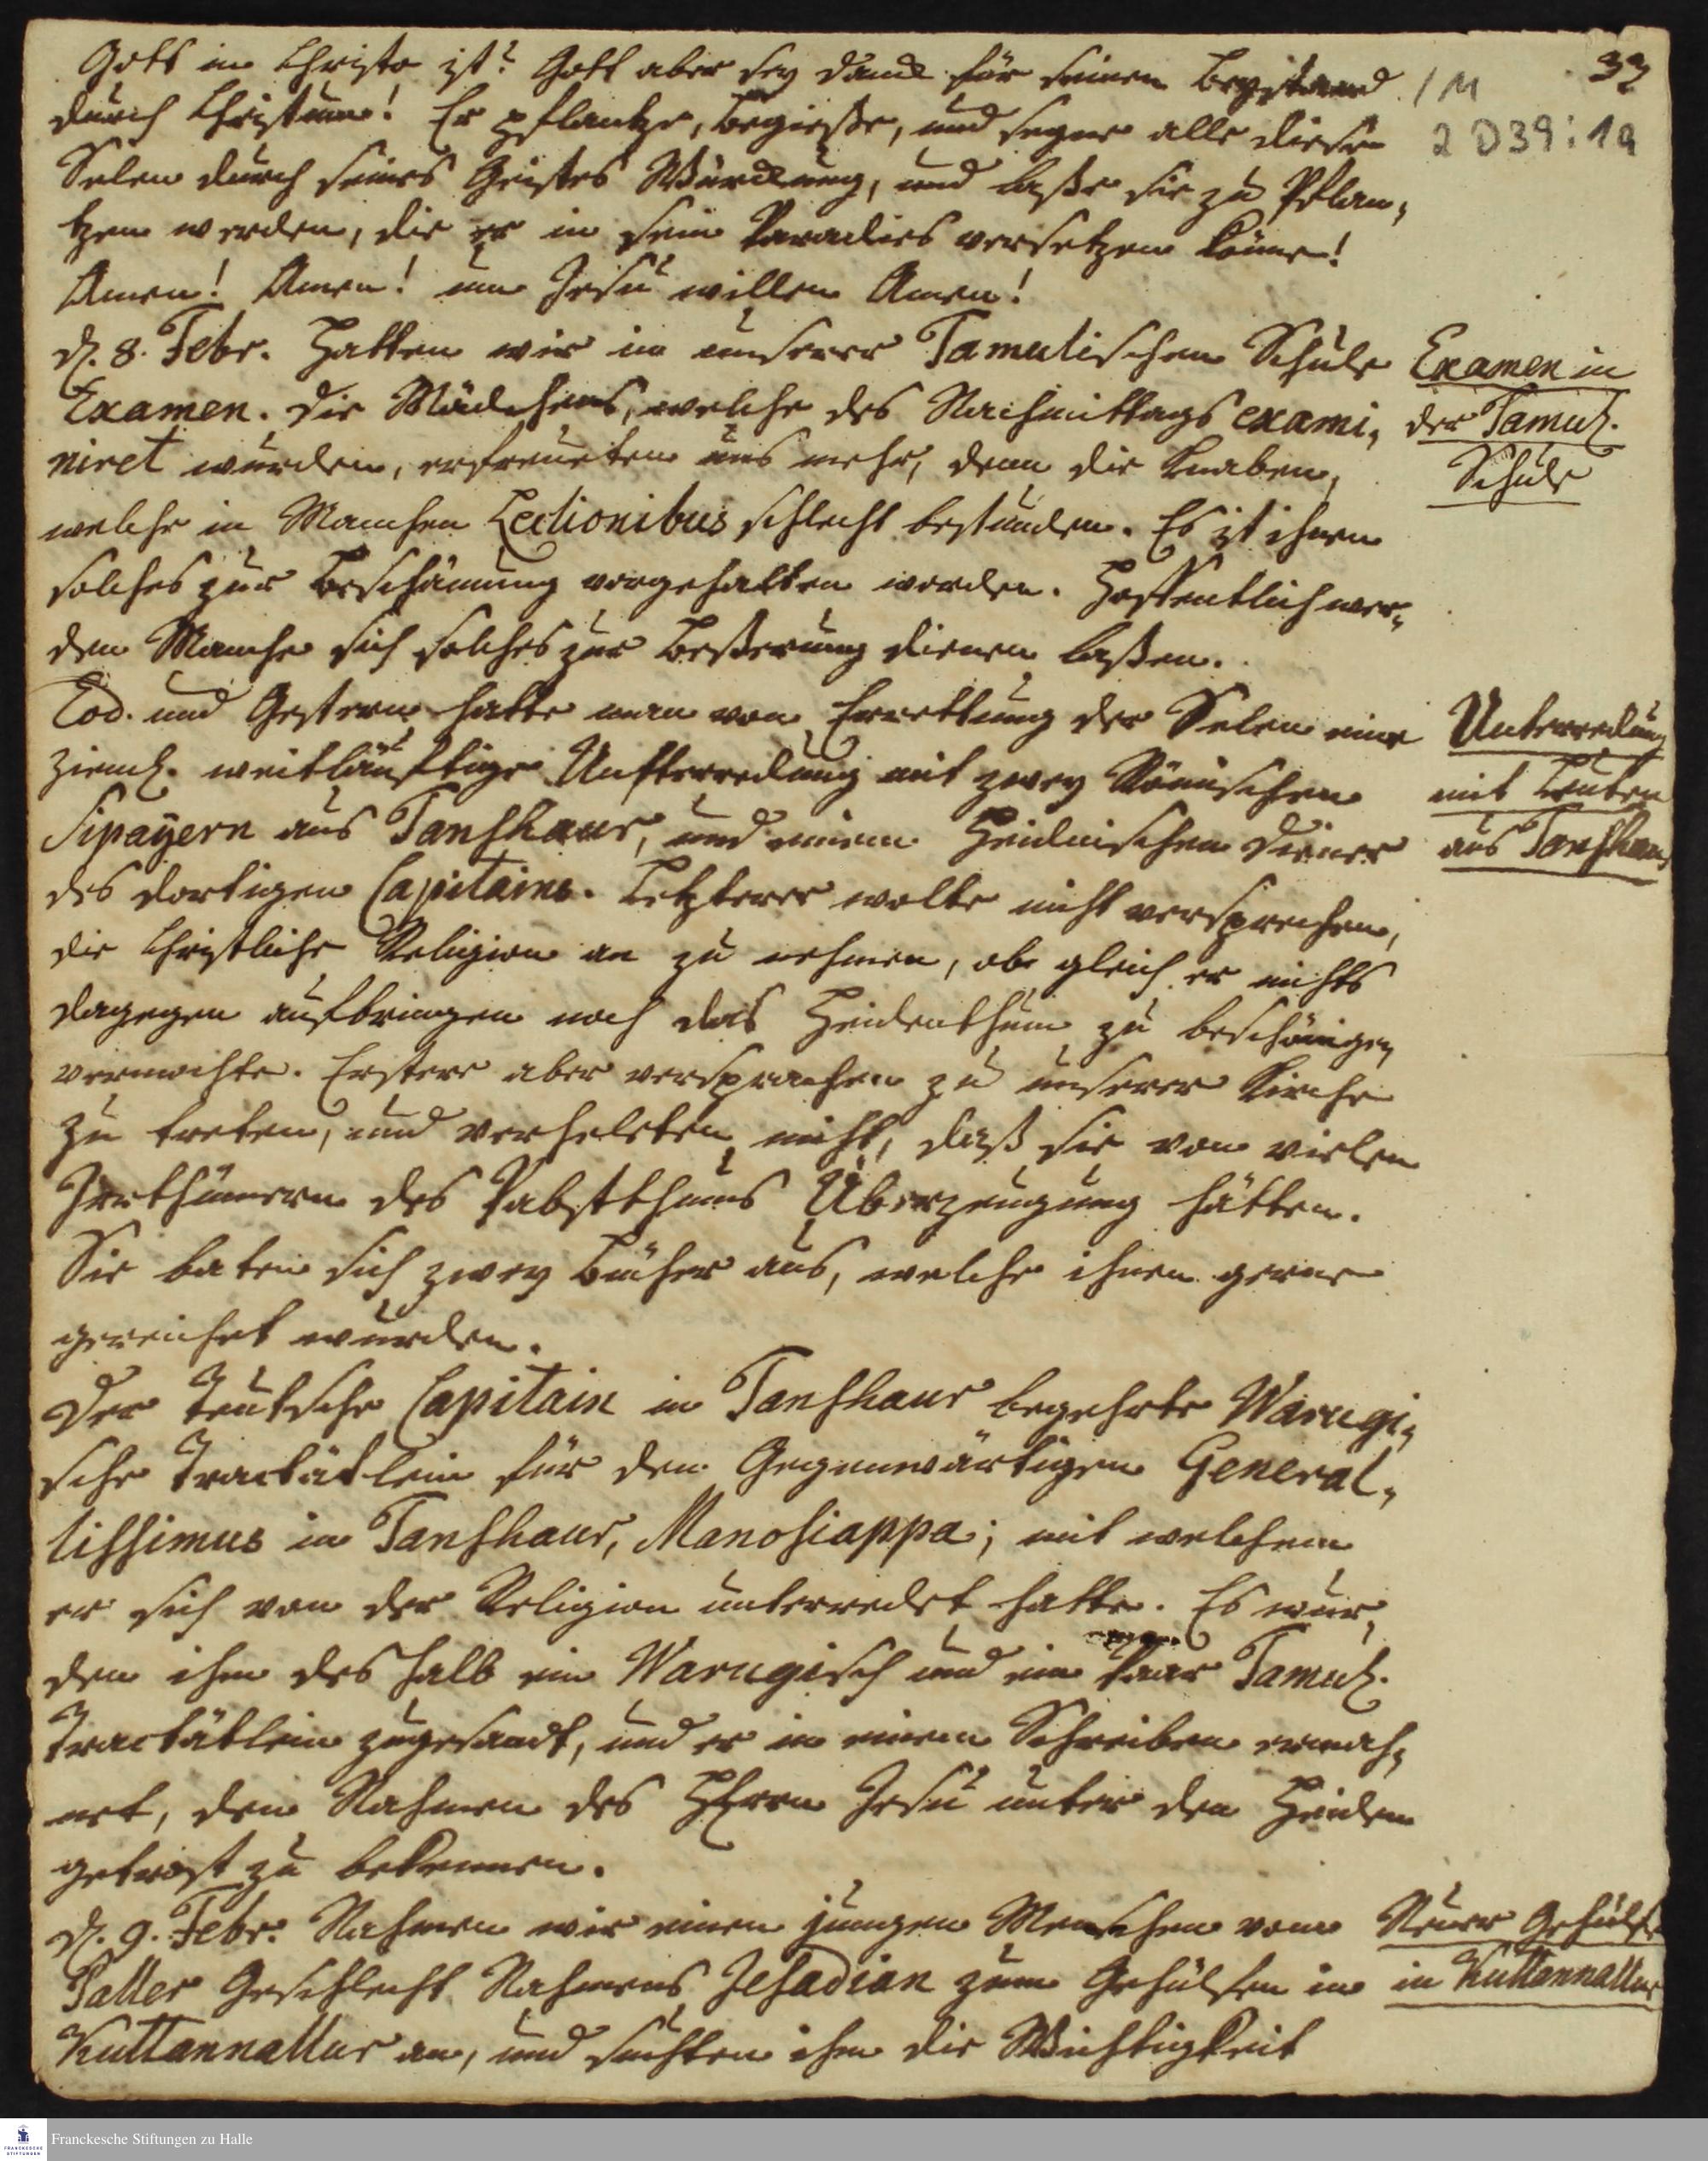 Gott in Christo ist? Gott aber sey danck für seinen Beystand
durch Christum! Er pflantze, begieße, und segne alle diese
Selen durch seines Geistes Würckung, und laße sie zu Pflan-
tzen werden, die er in sein Paradies versetzen könne!
Amen! Amen! um Jesu willen Amen!
d. 8. Febr. Hatten wir in unserer Tamulischen Schule
Examen. Die Mädchens, welche des Nachmittags exami-
niret wurden, erfreueten uns mehr, denn die Knaben,
welche in Manchen Lectionibus schlecht bestunden. Es ist ihnen
solches zur Beschämung vorgehalten worden. Hoffentlich wer-
den Manche sich solches zur Beßerung dienen laßen.
Eod. und Gestern hatte man von Errettung der Selen eine
zieml. weitläuftige Unterredung mit zwey Römischen
Sipayern aus Tanshaur, und einem Heidnischen Diener
des dortigen Capitains. Letzterer wolte nicht versprechen,
die Christliche Religion an zu nehmen, ob gleich er nichts
dagegen aufbringen noch das Heidenthum zu beschönigen
vermochte. Erstere aber versprachen zu unserer Kirche
zu treten, und verhelten nicht, daß sie von vielen
Irrthümern des Pabstthums Überzeugung hätten.
Sie baten sich zwey Bücher aus, welche ihnen gerne
gereichet wurden.
Der Teutsche Capitain in Tanshaur begehrte Warugi-
sche Tractätlein für den Gegenwärtigen General-
lissimus in Tanshaur, Manosiappa; mit welchem
er sich von der Religion unterredet hatte. Es wur-
den ihm des halb ein Warugisch und ein Paar Tamul.
Tractätlein zugesandt, und er in einem Schreiben ermah-
net, den Nahmen des HErrn Jesu unter den Heiden
getrost zu bekennen.
d. 9. Febr. Nahmen wir einen jungen Menschen vom
Paller Geschlecht Nahmens Jesadian zum Gehülfen in
Kuttannallur an, und suchten ihm die Wichtigkeit
33
1 M
2 D39:19
Examen in
der Tamul.
Schule
Unterredung
mit Leuten
aus Tanshaur
Neuer Gehülfe
in Kuttannallur
Franckesche Stiftungen zu Halle
FRANCKESCHE
STIFTUNGEN